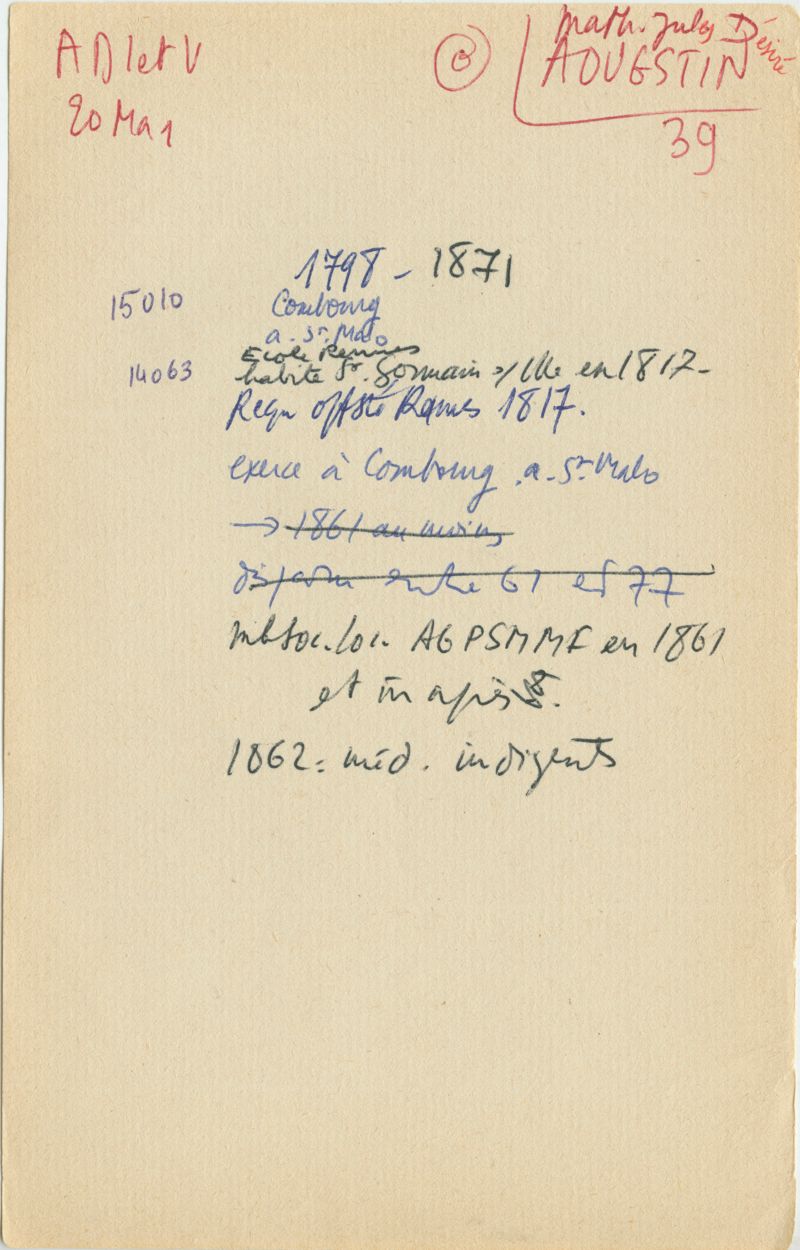 AD I et V
20 Ma 1
Math. Jules Désiré
AOUESTIN
39
1798 - 1871
15010 Combourg
a. St. Malo
Ecole Rennes
14063 habite St. Germain s/ Ille en 1817-
Reçu off Sté Rennes 1817.
exerce à Combourg .a. St. Malo
→ 1861 au moins
entre 61 et 77
mb soc. loc. AGPSMMF en 1861
et après
1862 = méd. indigents